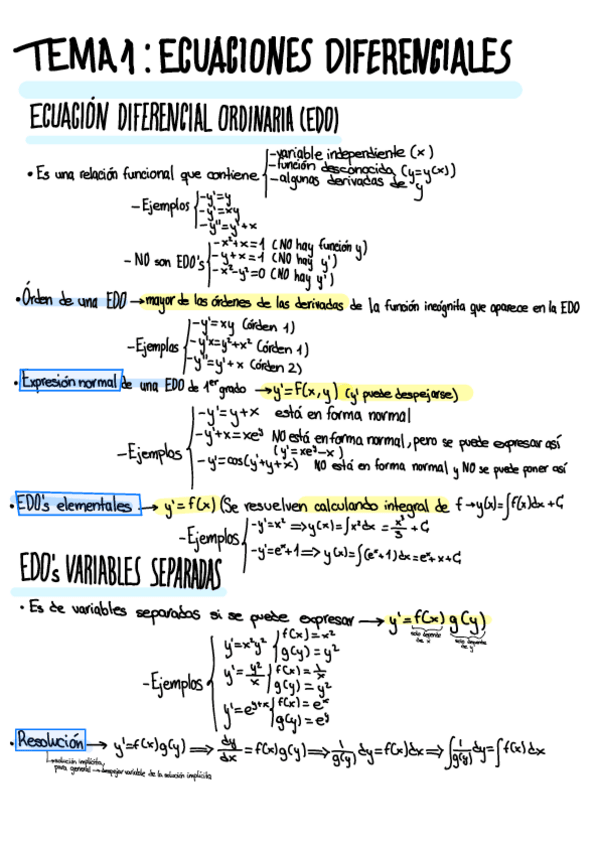 TEMA 1: ECUACIONES DIFERENCIALES
ECUACIÓN DIFERENCIAL ORDINARIA (EDO)
• Es una relación funcional que contiene
- variable independiente (x)
- función desconocida (y=y(x))
- algunas derivadas de y
- Ejemplos
- y'=y
- y'=xy
- y''=y'+x
- NO son EDO's
- x²+x=1 (NO hay función y)
- y+x=1 (NO hay y')
- x²-y²=0 (NO hay y')
• Órden de una EDO → mayor de los órdenes de las derivadas de la función incógnita que aparece en la EDO
- Ejemplos
- y'=xy (órden 1)
- y'x=y²+x² (órden 1)
- y''=y'+x (órden 2)
• Expresión normal de una EDO de 1er grado → y'=F(x,y) (y' puede despejarse)
- Ejemplos
- y'=y+x está en forma normal
- y'+x=xeʸ NO está en forma normal, pero se puede expresar así
(y'=xeʸ-x)
- y'=cos(y'+y+x) NO está en forma normal y NO se puede poner así
• EDO's elementales → y'=f(x) (Se resuelven calculando integral de f → y(x)=∫f(x)dx+C
- Ejemplos
- y'=x² ⇒ y(x)=∫x²dx = x³/3 + C
- y'=eˣ+1 ⇒ y(x)=∫(eˣ+1)dx=eˣ+x+C
EDO's VARIABLES SEPARADAS
• Es de variables separadas si se puede expresar → y'=f(x) g(y)
solo depende de x solo depende de y
- Ejemplos
y'=x²y² f(x)=x²
g(y)=y²
y'=y²/x f(x)=1/x
g(y)=y²
y'=eʸ⁺ˣ f(x)=eˣ
g(y)=eʸ
• Resolución → y'=f(x)g(y) ⇒ dy/dx=f(x)g(y) ⇒ 1/g(y) dy=f(x)dx ⇒ ∫1/g(y) dy=∫f(x)dx
solución implícita,
para general → despejar variable de la solución implícita